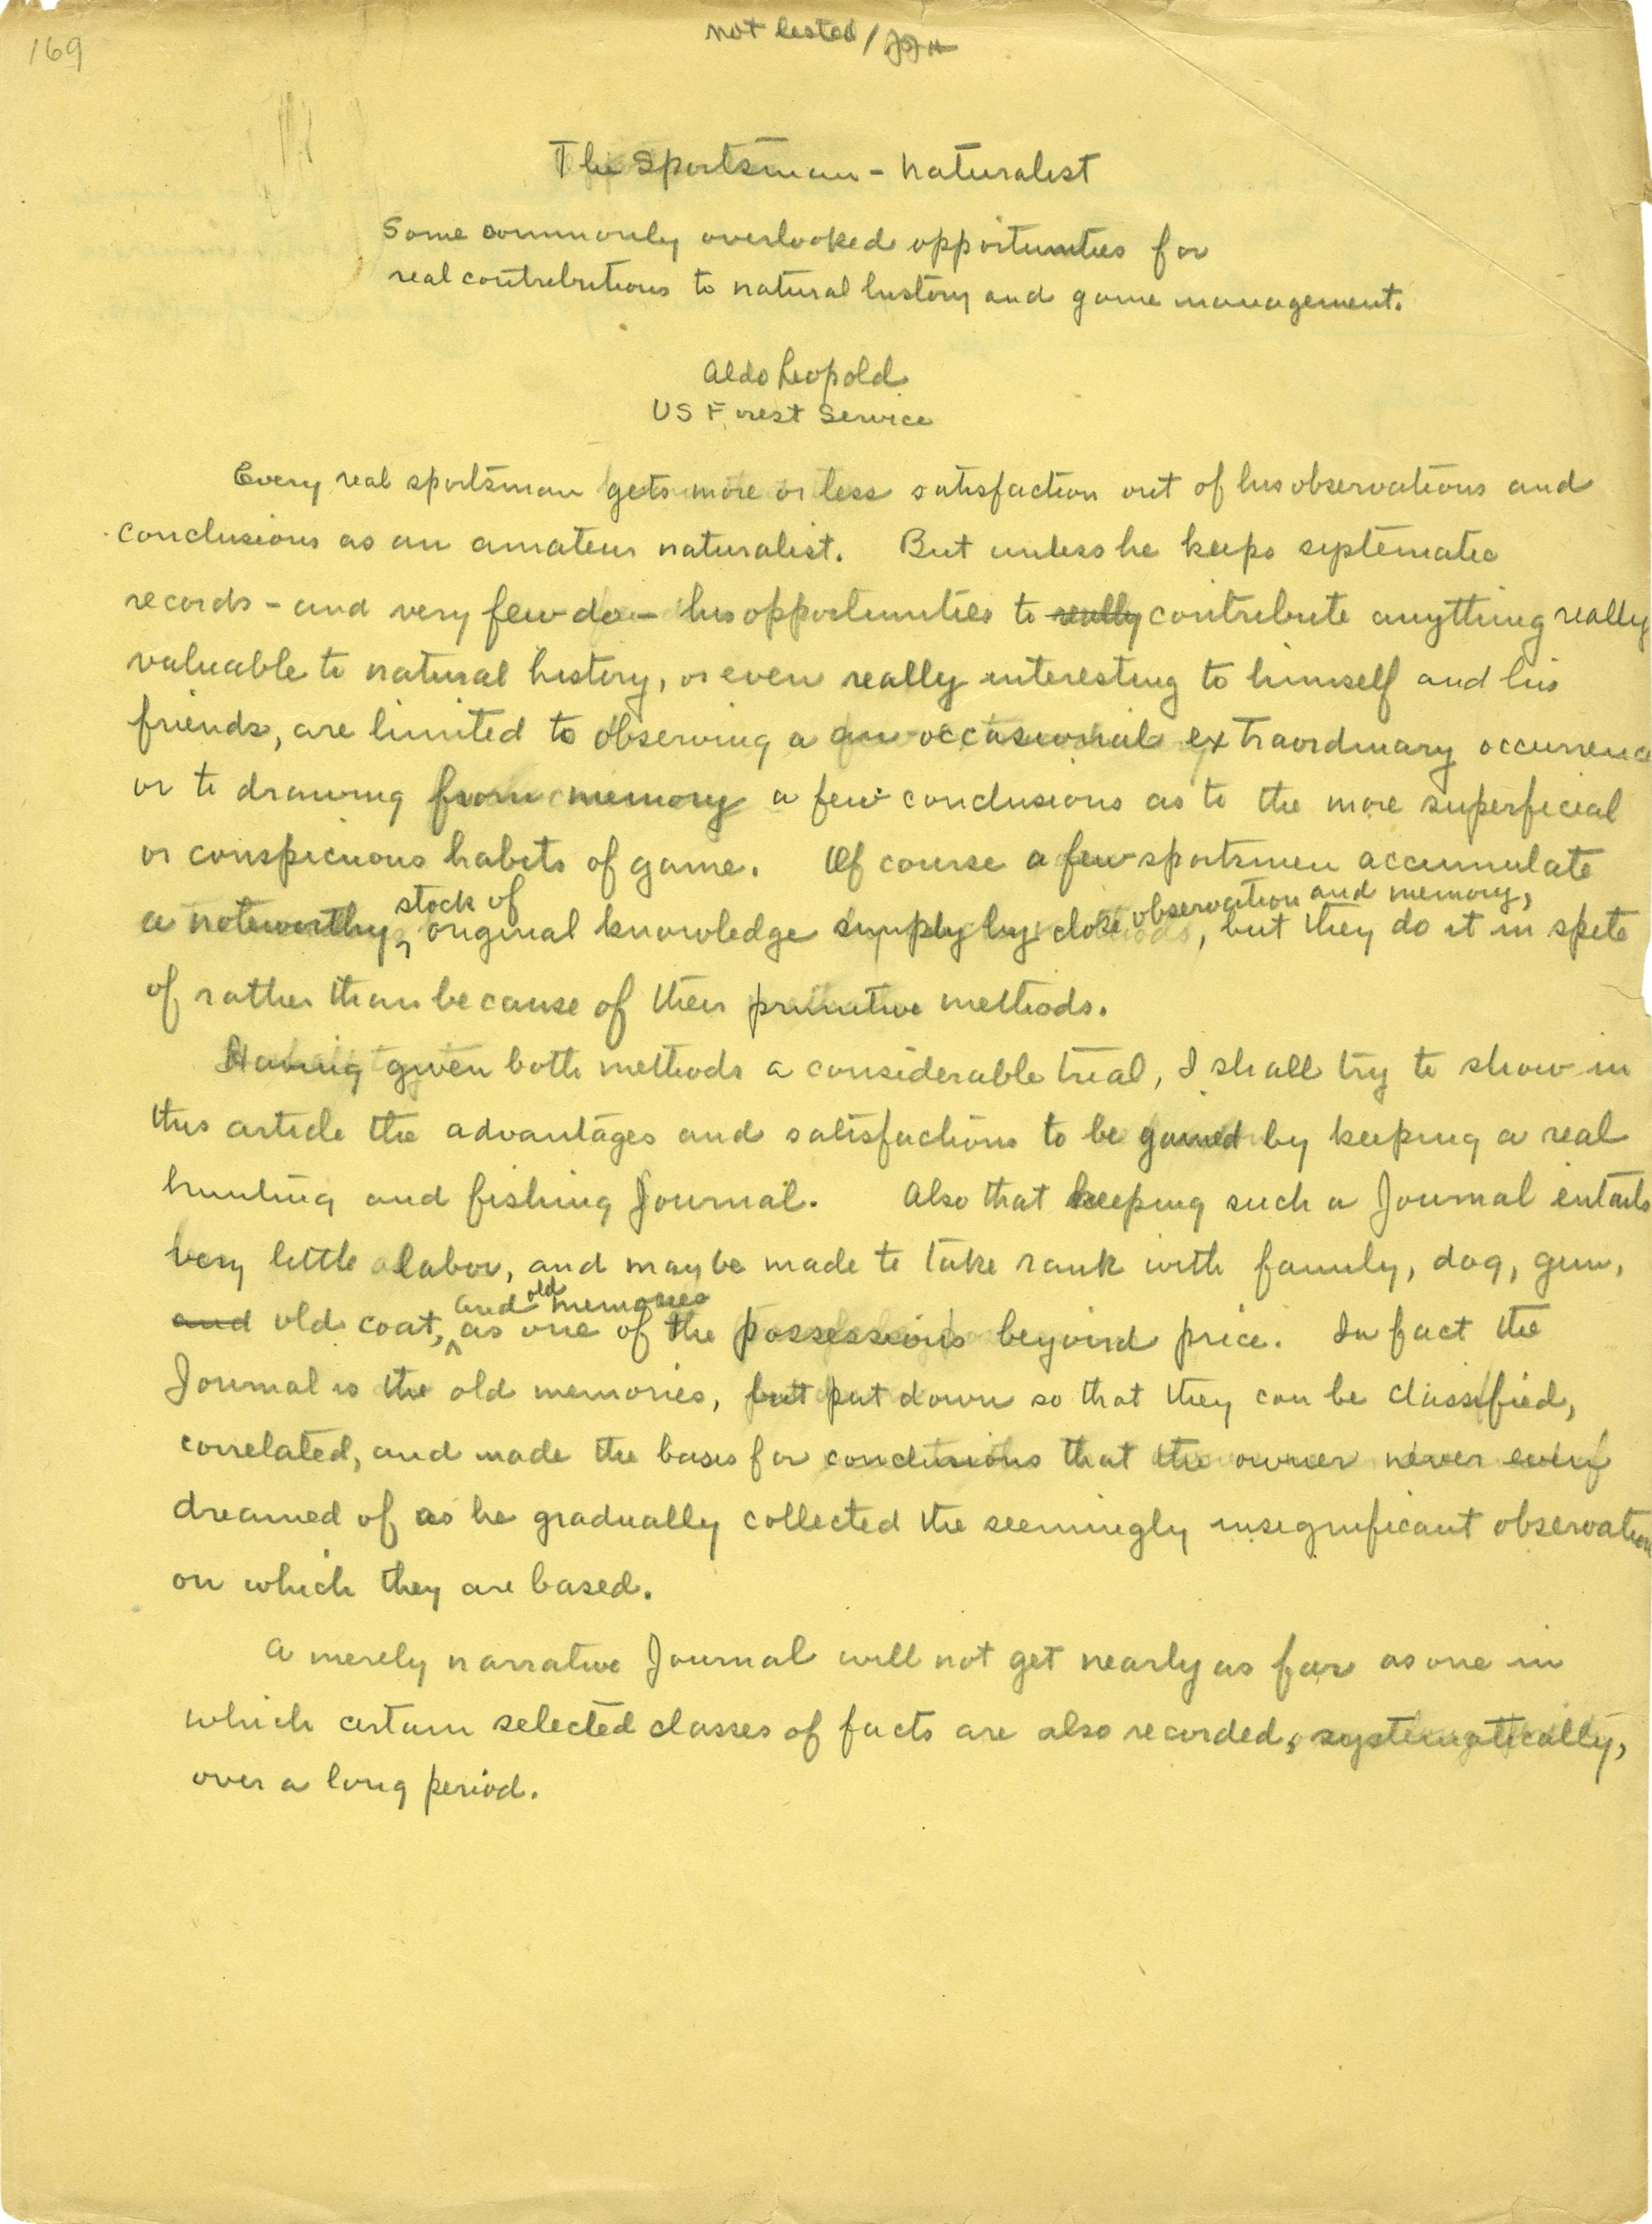 169
not listed / JJH
The Sportsman - Naturalist
Some commonly overlooked opportunities for
real contributions to natural history and game management.
Aldo Leopold
US Forest Service
Every real sportsman gets more or less satisfaction out of his observations and
conclusions as an amateur naturalist. But unless he keeps systematic
records - and very few do - his opportunities to really contribute anything really
valuable to natural history, or even really interesting to himself and his
friends, are limited to observing a an occasional extraordinary occurrence
or to drawing from memory a few conclusions as to the more superficial
or conspicuous habits of game. Of course a few sportsmen accumulate
a noteworthy stock of original knowledge simply by close observation and memory, but they do it in spite
of rather than because of their primitive methods.
Having given both methods a considerable trial, I shall try to show in
this article the advantages and satisfactions to be gained by keeping a real
hunting and fishing Journal. Also that keeping such a Journal entails
very little labor, and may be made to take rank with family, dog, gun,
and old coat, and old memories as one of the possessions beyond price. In fact the
Journal is the old memories, but put down so that they can be classified,
correlated, and made the basis for conclusions that the owner never even
dreamed of as he gradually collected the seemingly insignificant observation
on which they are based.
A merely narrative Journal will not get nearly as far as one in
which certain selected classes of facts are also recorded, systematically,
over a long period.